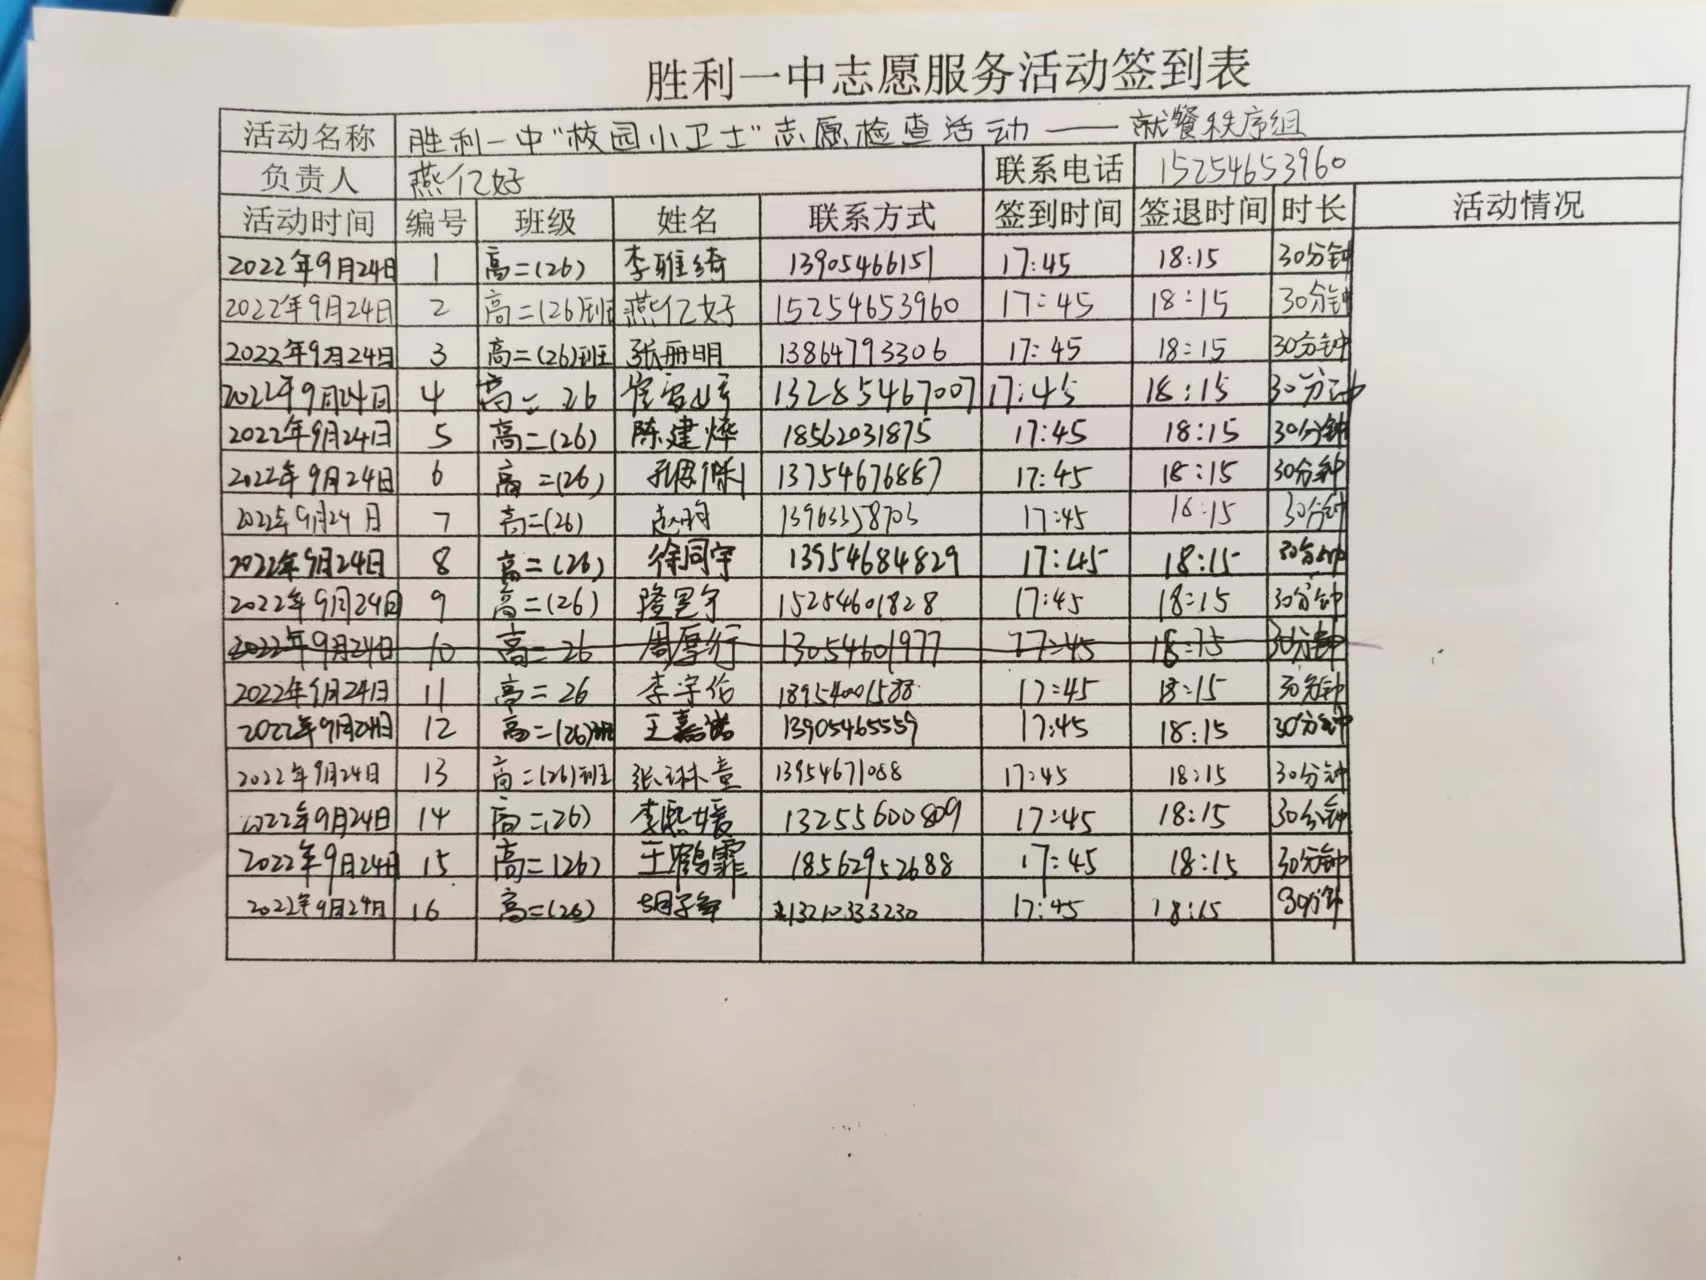 胜利一中志愿服务活动签到表
活动名称 胜利一中"校园小卫士"志愿检查活动——就餐秩序组
负责人 燕亿好 联系电话 15254653960
活动时间 编号 班级 姓名 联系方式 签到时间 签退时间 时长 活动情况
2022年9月24日 1 高二(26) 李雅绮 13905466151 17:45 18:15 30分钟
2022年9月24日 2 高二(26)班 燕亿好 15254653960 17:45 18:15 30分钟
2022年9月24日 3 高二(26)班 张丽明 13864793306 17:45 18:15 30分钟
2022年9月24日 4 高二 26 13285467007 17:45 18:15 30分钟
2022年9月24日 5 高二(26) 陈建烨 18562031875 17:45 18:15 30分钟
2022年9月24日 6 高二(26) 13754676887 17:45 18:15 30分钟
2022年9月24日 7 高二(26) 13963358703 17:45 18:15 30分钟
2022年9月24日 8 高二(26) 徐同宇 13954684829 17:45 18:15 30分钟
2022年9月24日 9 高二(26) 15254601828 17:45 18:15 30分钟
2022年9月24日 10 高二 26 周厚行 13054601977 17:45 18:15 30分钟
2022年9月24日 11 高二 26 李宇伦 18954001588 17:45 18:15 30分钟
2022年9月24日 12 高二(26)班 王嘉诺 13905465559 17:45 18:15 30分钟
2022年9月24日 13 高二(26)班 张琳童 13954671088 17:45 18:15 30分钟
2022年9月24日 14 高二(26) 李熙媛 13255600809 17:45 18:15 30分钟
2022年9月24日 15 高二(26) 王鹤霏 18562952688 17:45 18:15 30分钟
2022年9月24日 16 高二(26) 13210333230 17:45 18:15 30分钟